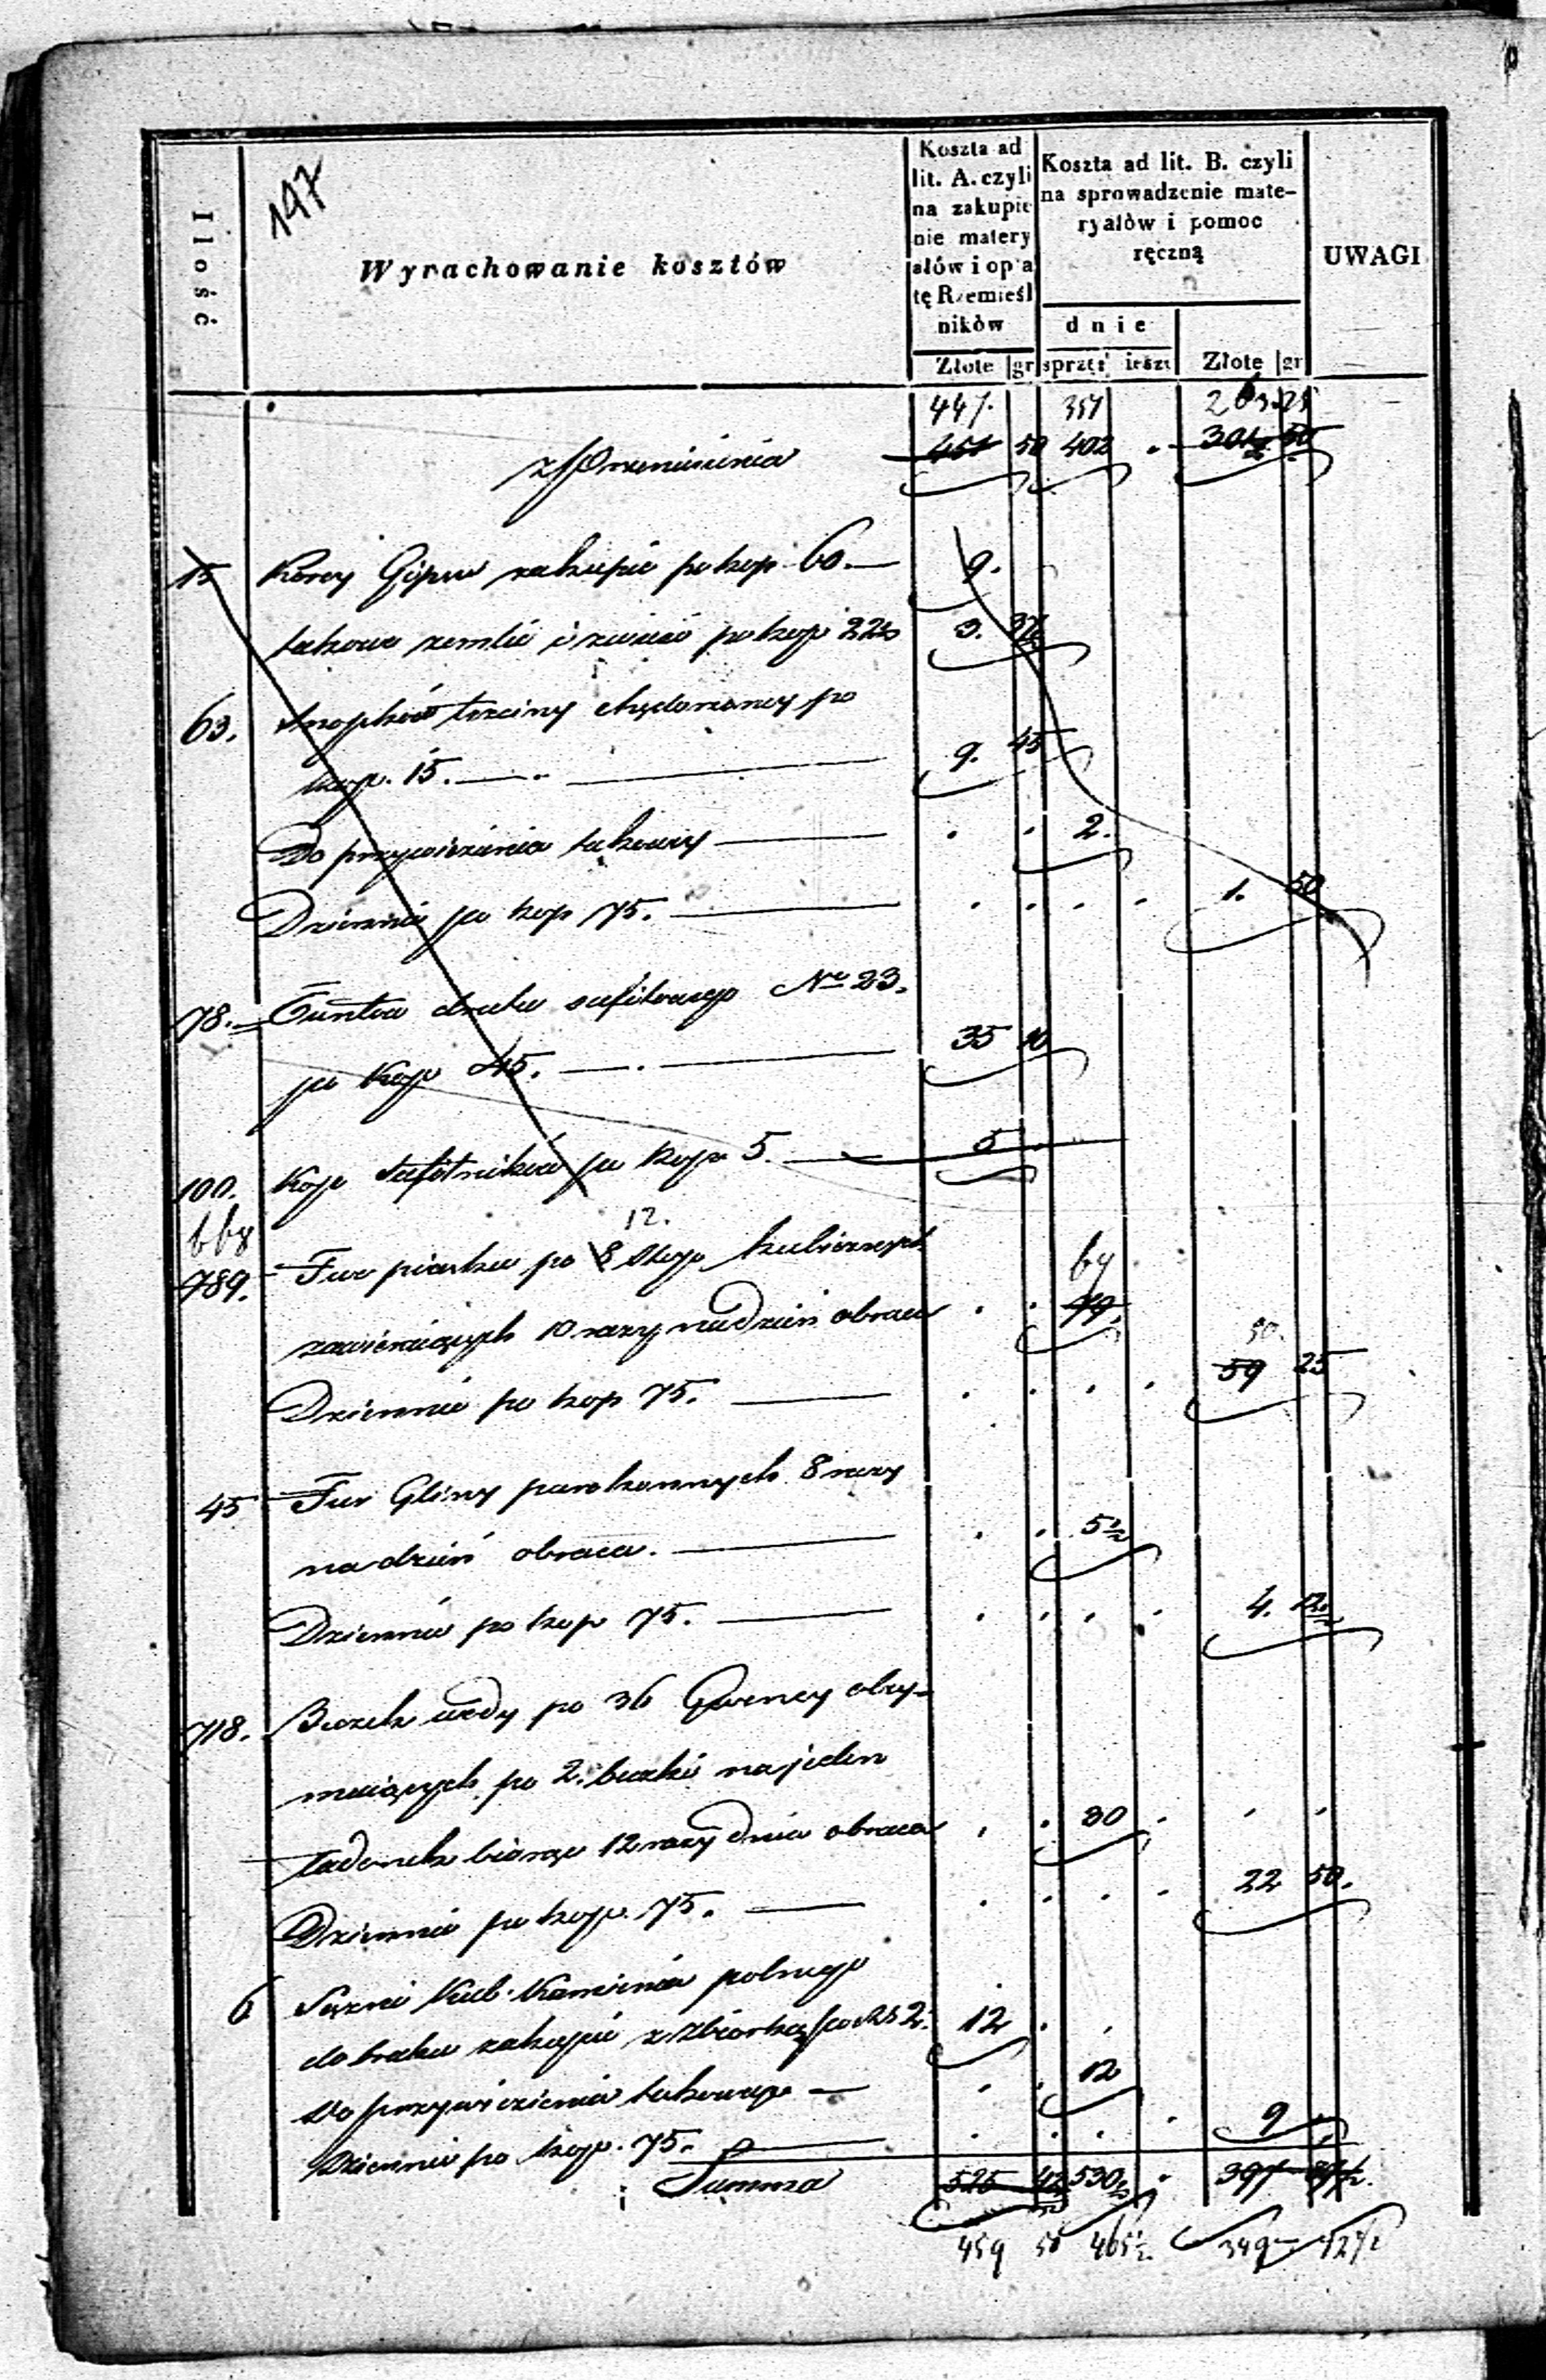 Ilość
197
Wyrachowanie kosztów
Koszta ad
lit. A. czyli
na zakupie
nie matery
ałów i opła
tę Rzemieśl
ników
Koszta ad lit. B. czyli
na sprowadzenie mate-
ryałów i pomoc
ręczną
dnie
UWAGI
Złote gr sprzęż Złote gr
447. 357 263. 25
z Przeniesienia 451 50 402 . 301 50
15 Korcy Gipsu zakupić po kop 60. — 9.
takowe zemleć i zwieść po kop 22½ 3. 37½
63. snopków trzciny chędożoney po
kop. 15. — 9. 45
Do przywiezienia takowey — . . 2.
Dziennie po kop 75. — . . . . 1. 50
78. Funtów drutu sufitowego No 23.
po kop 45. — 35 10
100. Kop Sufitników po kop 5. — 5
668 12.
789. Fur piasku po 8 stop kubicznych 67
zawierających 10 razy na dzień obraca . . 79.
50.
Dziennie po kop 75. — . . . . 59 25
45 Fur Gliny parokonnych 8 razy
na dzień obraca. — . . 5½
Dziennie po kop 75. — . . . . 4. 12½
718. Beczek wody po 36 Garncy obey-
muiących po 2. beczki na jeden
ładunek biorąc 12 razy dnia obraca . . 30 . . .
Dziennie po kop. 75. — . . . . 22 50.
6 Sążni Kub. Kamienia polnego
do bruku zakupić z zbiorką po rs 2. 12 . .
Do przywiezienia takowego — . . 12
Dziennie po kop. 75. — . . . . 9 .
Summa 525 42½ 530½ . 397 87½.
459 50 465½ 349 42½